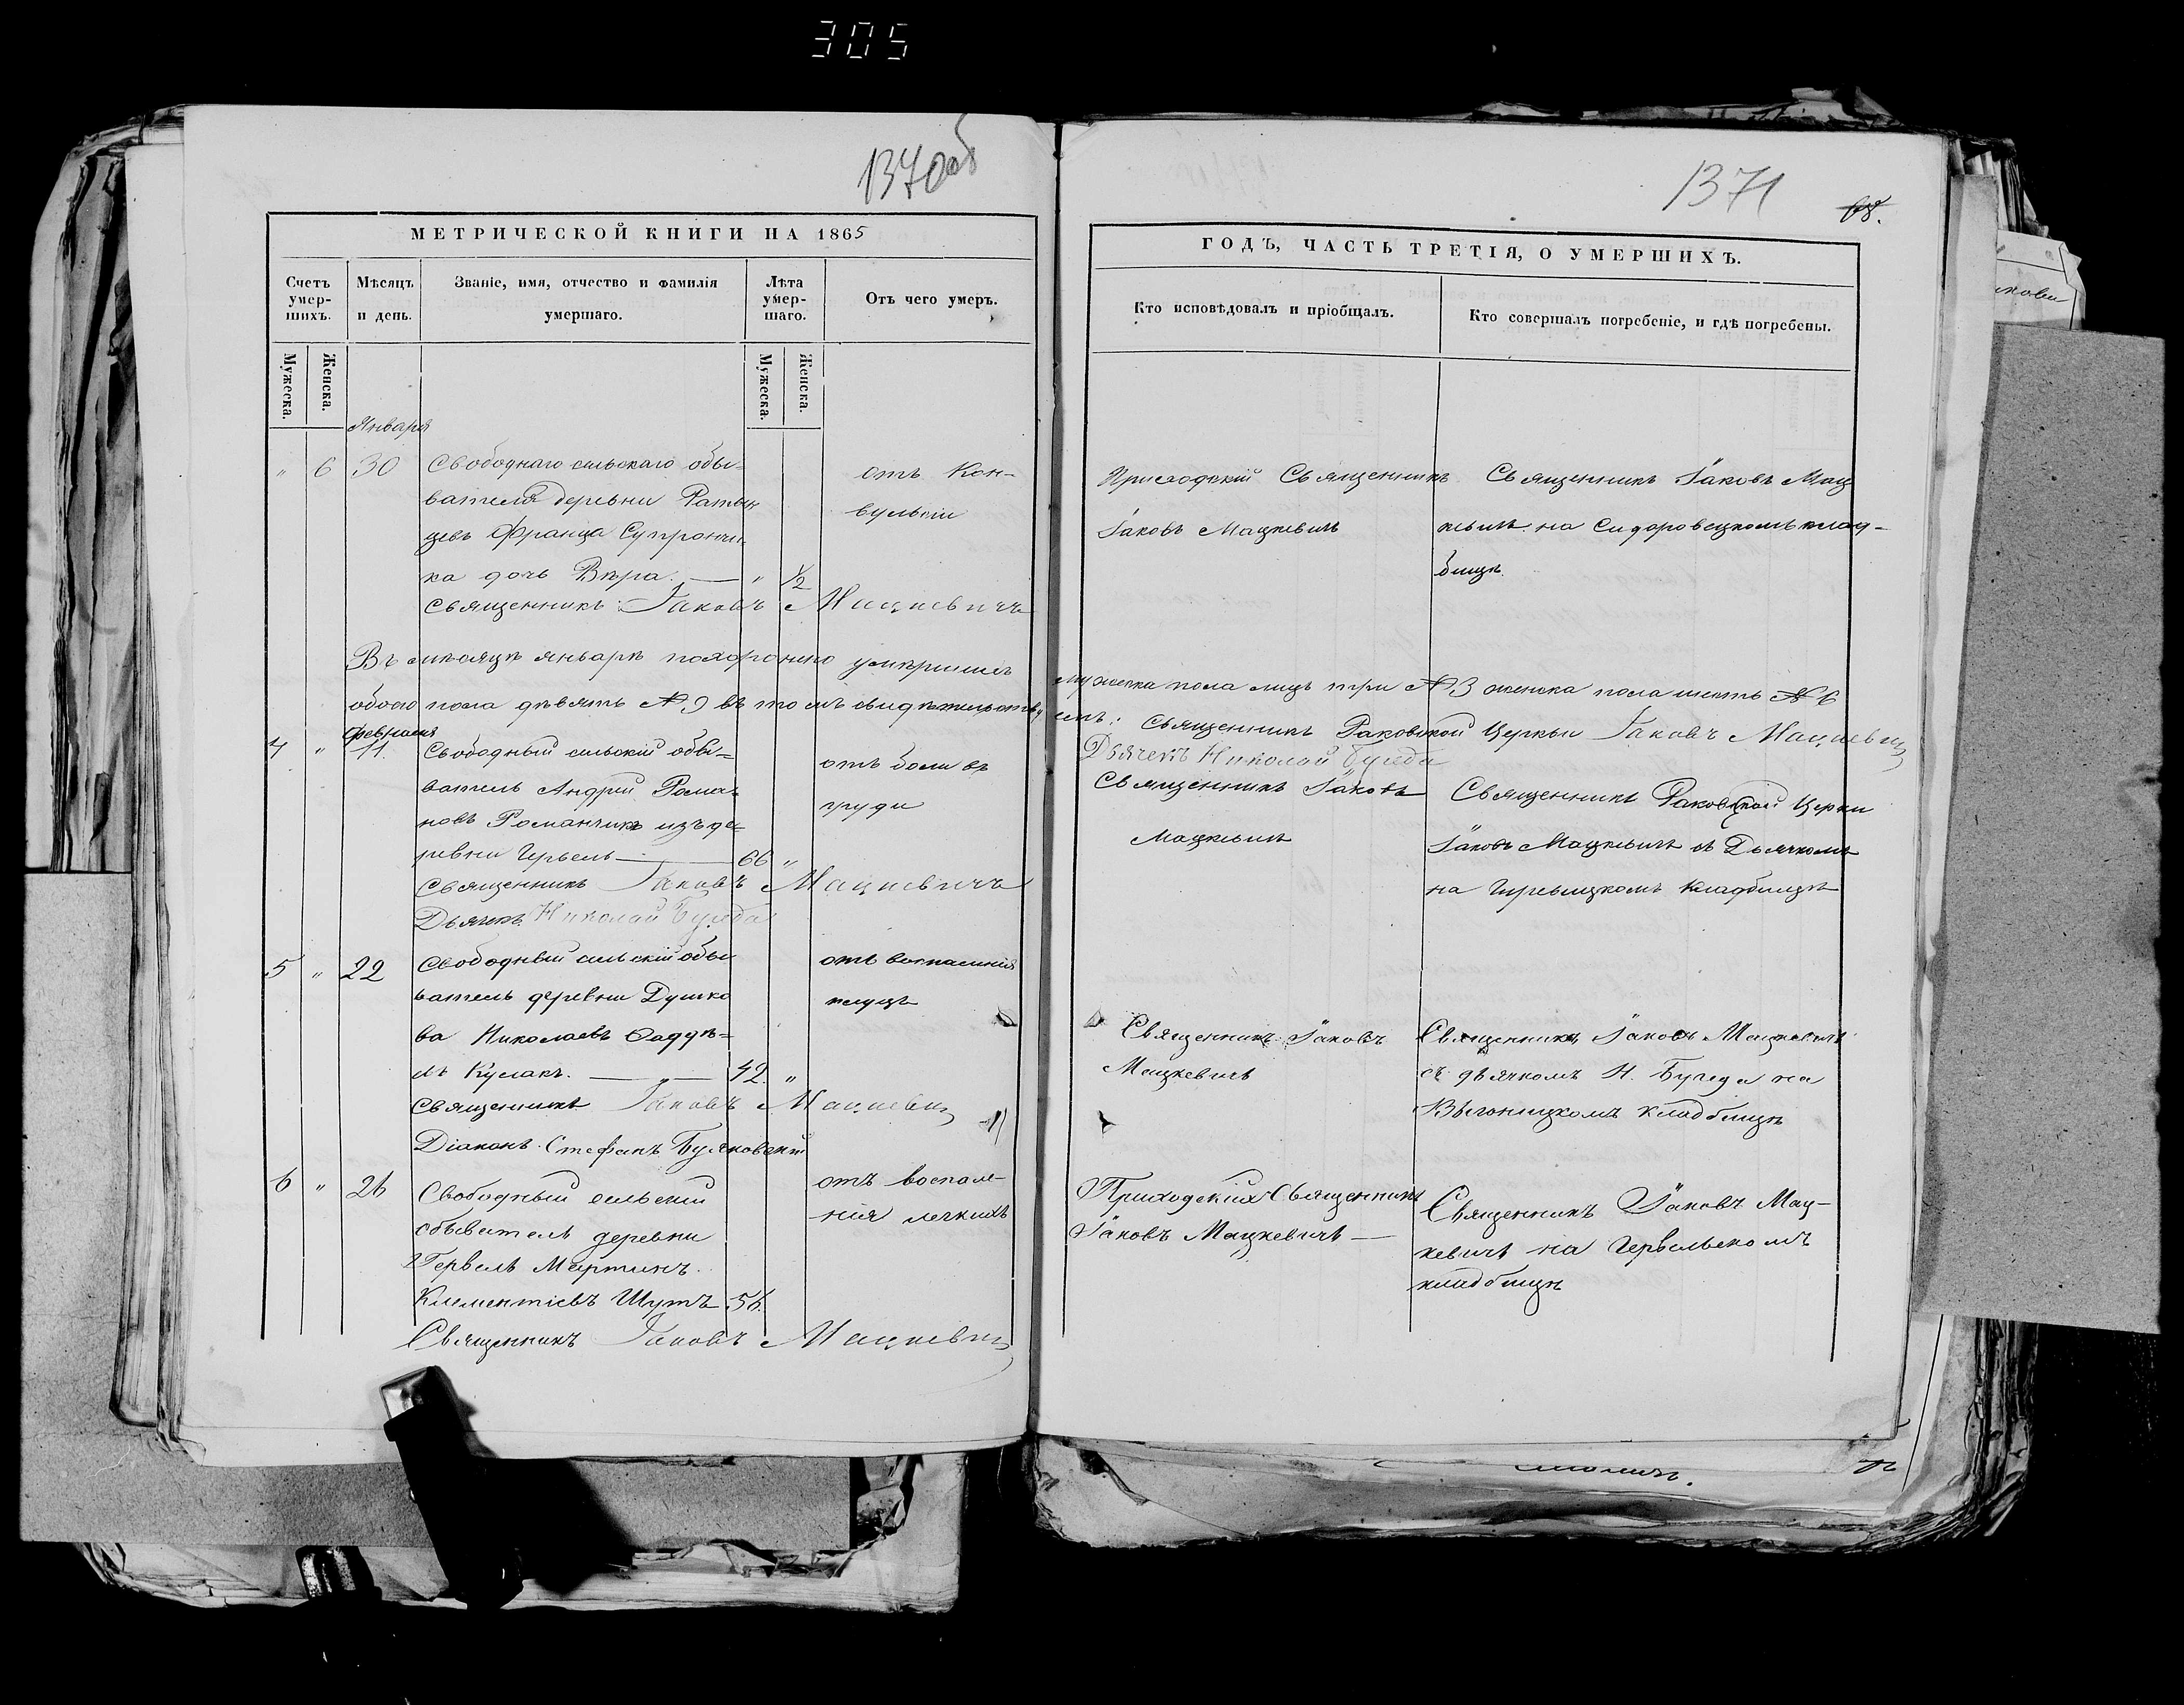 305
1370 об
МЕТРИЧЕСКОЙ КНИГИ НА 1865
Счетъ умер-шихъ.
Мѣсяцъ и день.
Званіе, имя, отчество и фамилія умершаго.
Лѣта умер-шаго.
Отъ чего умеръ.
Мужеска.
Женска.
Мужеска.
Женска.
Января
" 6 30 Свободнаго сельскаго обы-
вателя деревни
Франца Супрончи-
ка дочь Вѣра. — " 1/2
отъ Кон-
вульсіи
Священникъ Іаковъ Мацкевичъ
Въ мѣсяцѣ январѣ похоронено умершихъ
обоего пола девять № 9 въ томъ
Февраля
4 " 11. Свободный сельскій обы-
ватель Андрей Рома-
новъ Романчикъ изъ де-
ревни — 66 "
отъ боли въ
груди
Священникъ Іаковъ Мацкевичъ
Дьячекъ Николай
5 " 22 Свободный сельскій обы
ватель деревни Душко
ва Николаевъ
Кулакъ. — 42. "
отъ воспаленія
Священникъ Іаковъ Мацкевичъ
Діаконъ Стефанъ
6 " 26 Свободный сельскій
обыватель деревни
Гервель Мартинъ
Климентіевъ Шутъ 56.
отъ воспале-
нія легкихъ
Священникъ Іаковъ Мацкевичъ
1371
68.
ГОДЪ, ЧАСТЬ ТРЕТІЯ, О УМЕРШИХЪ.
Кто исповѣдовалъ и пріобщалъ.
Кто совершалъ погребеніе, и гдѣ погребены.
Приходскій Священникъ
Іаковъ Мацкевичъ
Священникъ Іаковъ Мац
кевичъ на Сидоровецкомъ клад-
бищѣ.
мужеска пола лицъ три № 3 женска пола шесть № 6
Священникъ Раковской Церкви Іаковъ Мацкевичъ
Дьячекъ Николай
Священникъ Іаковъ
Мацкевичъ
Священникъ Раковской Церкви
Іаковъ Мацкевичъ съ Дьячкомъ
на кладбищѣ
Священникъ Іаковъ
Мацкевичъ
Священникъ Іаковъ Мацкевичъ
съ дьячкомъ Н. на
кладбищѣ
Приходскій Священникъ
Іаковъ Мацкевичъ —
Священникъ Іаковъ Мац-
кевичъ на Гервельскомъ
кладбищѣ